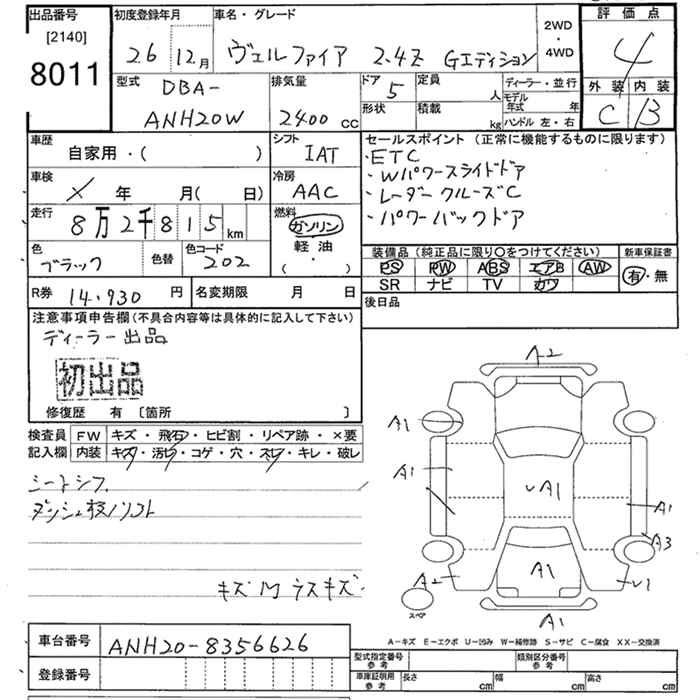 出品番号
[2140]
8011
初度登録年月
26 12月
車名・グレード
ヴェルファイア 2.4Z Gエディション
2WD
・
4WD
評価点
4
外装 内装
C B
型式
DBA-
ANH20W
排気量
2400 cc
ドア
5
形状
定員
人
積載
kg
ディーラー・並行
モデル年式 年
ハンドル 左・右
車歴
自家用・( )
シフト
IAT
車検
× 年 月( 日)
冷房
AAC
走行
8万2千815 km
燃料
ガソリン
軽油
( ・ )
色
ブラック
色替
色コード
202
R券 14,930 円
名変期限 月 日
セールスポイント (正常に機能するものに限ります)
・ETC
・Wパワースライドドア
・レーダークルーズC
・パワーバックドア
装備品 (純正品に限り○をつけてください)
PS PW ABS エアB AW
SR ナビ TV カワ
新車保証書
有・無
後日品
注意事項申告欄 (不具合内容等は具体的に記入して下さい)
ディーラー出品
初出品
修復歴 有 [箇所 ]
検査員 FW キズ・飛石・ヒビ割・リペア跡・×要
記入欄 内装 キズ・汚レ・コゲ・穴・スレ・キレ・破レ
シートシワ
キズM ラスキズ
車台番号 ANH20-8356626
登録番号
A2
A1
A1
A1
A1
A3
A1
A2
U1
スペア
A1
A-キズ E-エクボ U-凹み W-補修跡 S-サビ C-腐食 XX-交換済
型式指定番号
参考
類別区分番号
参考
車庫証明用
参考
長さ cm
幅 cm
高さ cm